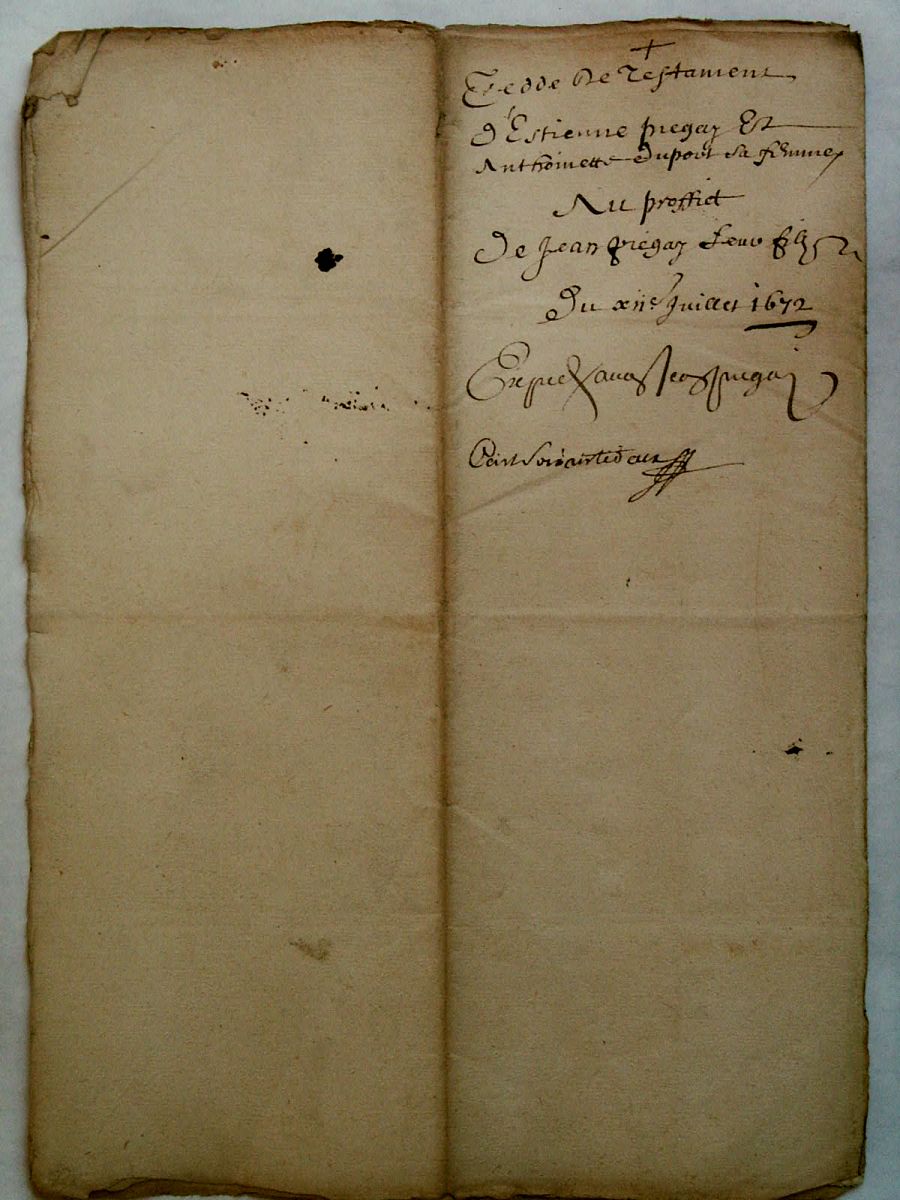 +
Cedde De Testament
d'Estienne piegay Et
Anthoinette dupont sa femme
Au proffict
De Jean piegay Leur filz
Du xiie Juillet 1672
piegay
Cent soixante deux